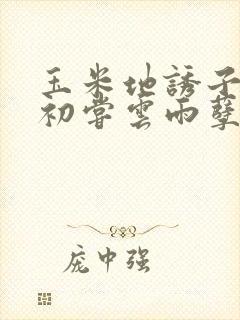 玉米地誘子
初嘗雲雨孽
庞中强